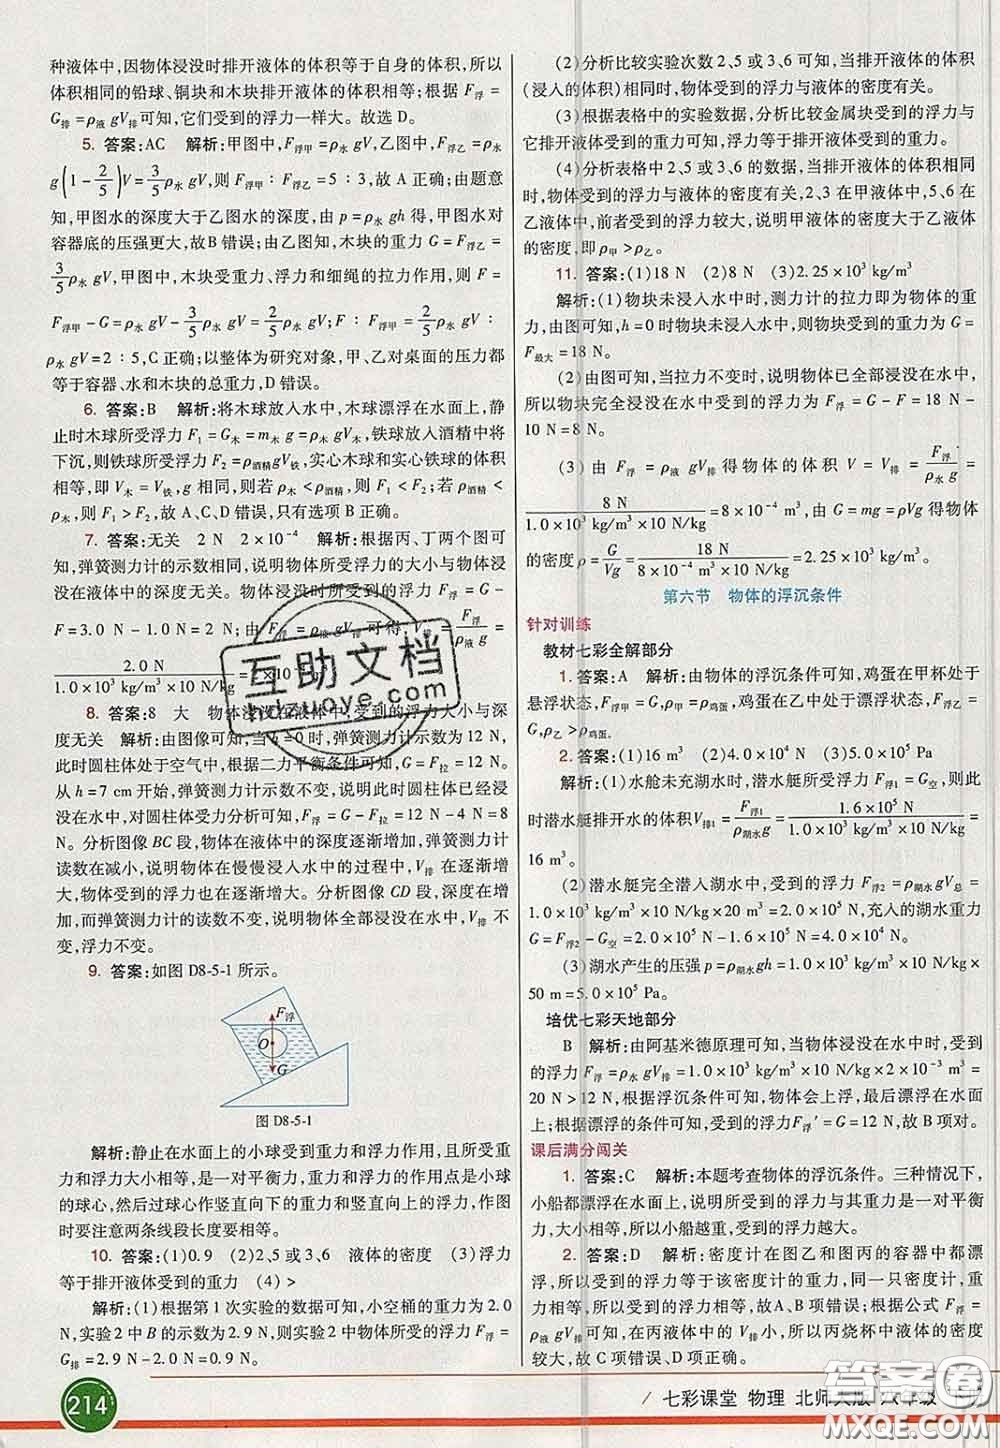 种液体中,因物体浸没时排开液体的体积等于自身的体积,所以
体积相同的铅球、铜块和木块排开液体的体积相等;根据 F浮=
G排=ρ液 gV排可知,它们受到的浮力一样大。故选 D。
5. 答案:AC 解析:甲图中,F浮甲=ρ水 gV,乙图中,F浮乙=ρ水
g(1-2/5)V=3/5ρ水 gV,所以 F浮甲∶F浮乙=5∶3,故 A 正确;由题意
知,甲图水的深度大于乙图水的深度,由 p=ρ水 gh 得,甲图水对
容器底的压强更大,故B错误;由乙图知,木块的重力 G=F浮乙=
3/5ρ水 gV,甲图中,木块受重力、浮力和细绳的拉力作用,则 F=
F浮甲-G=ρ水 gV-3/5ρ水 gV=2/5ρ水 gV;F∶F浮甲=2/5ρ水 gV∶
ρ水 gV=2∶5,C正确;以整体为研究对象,甲、乙对桌面的压力都
等于容器、水和木块的总重力,D错误。
6. 答案:B 解析:将木球放入水中,木球漂浮在水面上,静
止时木球所受浮力 F1=G木=m木 g=ρ木 gV木,铁球放入酒精中将
下沉,则铁球所受浮力 F2=ρ酒精gV铁,实心木球和实心铁球的体积
相等,即 V木=V铁,g 相同,则若 ρ木<ρ酒精,则 F1<F2;若 ρ酒精<
ρ木,F1>F2。故 A、C、D 错误,只有选项 B 正确。
7. 答案:无关 2 N 2×10⁻⁴ 解析:根据丙、丁两个图可
知,弹簧测力计的示数相同,说明物体所受浮力的大小与物体浸
没在液体中的深度无关。物体浸没时所受到的浮力 F浮=G-
F=3.0 N-1.0 N=2 N;由 F浮=ρ液 gV排 可得,V排=F浮/ρ液 g=
2.0 N/1.0×10³ kg/m³×10 N/kg
8. 答案:8 大 物体浸没在液体中,受到的浮力大小与深
度无关 解析:由图像可知,当 h=0时,弹簧测力计示数为 12 N,
此时圆柱体处于空气中,根据二力平衡条件可知,G=F拉=12 N。
从 h=7 cm 开始,弹簧测力计示数不变,说明此时圆柱体已经浸
没在水中,对圆柱体受力分析可知,F浮=G-F拉=12 N-4 N=
8 N。分析图像 BC 段,物体在液体中的深度逐渐增加,弹簧测力计
读数在减小,说明物体在慢慢浸入水中的过程中,V排 在逐渐增
大,物体受到的浮力也在逐渐增大。分析图像 CD 段,深度在增
加,而弹簧测力计的读数不变,说明物体全部浸没在水中,V排 不
变,浮力不变。
9. 答案:如图 D8-5-1 所示。
F浮
O
G
图 D8-5-1
解析:静止在水面上的小球受到重力和浮力作用,且所受重
力与浮力的大小相等,是一对平衡力,重力和浮力的作用点是小球
的球心,然后过球心作竖直向下的重力和竖直向上的浮力,作图
时要注意两条线段长度要相等。
10. 答案:(1)0.9 (2)2、5或3、6 液体的密度 (3)浮力
等于排开液体受到的重力 (4)>
解析:(1)根据第 1 次实验的数据可知,小空桶的重力为 2.0
N,实验 2 中 B 的示数为 2.9 N,则实验 2 中物体所受的浮力 F浮=
G排=2.9 N-2.0 N=0.9 N。
(2)分析比较实验次数2、5或3、6可知,当排开液体的体积
(浸入的体积)相同时,物体受到的浮力与液体的密度有关。
(3)根据表格中的实验数据,分析比较金属块受到的浮力与
它排开液体受到的重力可知,浮力等于排开液体受到的重力。
(4)分析表格中 2、5 或 3、6 的数据,当排开液体的体积相同
时,物体受到的浮力与液体的密度有关,2、3在甲液体中,5、6在
乙液体中,前者受到的浮力较大,说明甲液体的密度大于乙液体
的密度,即 ρ甲>ρ乙。
11. 答案:(1)18 N (2)8 N (3)2.25×10³ kg/m³
解析:(1)物块未浸入水中时,测力计的拉力即为物体的重
力,由图可知,h=0时物块未浸入水中,则物块受到的重力为 G=
F最大=18 N。
(2)由图可知,当拉力不变时,说明物体已全部浸没在水中,
所以物块完全浸没在水中受到的浮力为 F浮=G-F=18 N-
10 N=8 N。
(3) 由 F浮=ρ液 gV排 得物体的体积 V=V排=F浮/ρ水 g=
8 N/1.0×10³ kg/m³×10 N/kg=8×10⁻⁴ m³,由 G=mg=ρVg 得物体
的密度ρ=G/Vg=18 N/8×10⁻⁴ m³×10 N/kg=2.25×10³ kg/m³。
第六节 物体的浮沉条件
针对训练
教材七彩全解部分
1. 答案:A 解析:由物体的浮沉条件可知,鸡蛋在甲杯处于
悬浮状态,F浮甲=G,ρ甲=ρ鸡蛋,鸡蛋在乙中处于漂浮状态,F浮乙=
G,ρ乙>ρ鸡蛋。
2. 答案:(1)16 m³ (2)4.0×10⁴ N (3)5.0×10⁵ Pa
解析:(1)水舱未充湖水时,潜水艇所受浮力 F浮1=G空,则此
时潜水艇排开水的体积V排1=F浮1/ρ湖水g=1.6×10⁵ N/1.0×10³ kg/m³×10 N/kg=
16 m³。
(2)潜水艇完全潜入湖水中,受到的浮力 F浮2=ρ湖水 gV总=
1.0×10³ kg/m³×10 N/kg×20 m³=2.0×10⁵ N,充入的湖水重力
G=F浮2-G空=2.0×10⁵ N-1.6×10⁵ N=4.0×10⁴ N。
(3)湖水产生的压强 p=ρ湖水gh=1.0×10³ kg/m³×10 N/kg×
50 m=5.0×10⁵ Pa。
培优七彩天地部分
B 解析:由阿基米德原理可知,当物体浸没在水中时,受到
的浮力 F浮=ρ水 gV排=1.0×10³ kg/m³×10 N/kg×2×10⁻³ m³=
20 N>12 N,根据浮沉条件可知,物体会上浮,最后漂浮在水面
上;根据漂浮的条件可知,受到的浮力F浮′=G=12 N,故B项对。
课后满分闯关
1. 答案:C 解析:本题考查物体的浮沉条件。三种情况下,
小船都漂浮在水面上,说明所受的浮力与其重力是一对平衡
力,大小相等,所以小船越重,受到的浮力越大。
2. 答案:D 解析:密度计在图乙和图丙的容器中都漂
浮,所以受到的浮力等于该密度计的重力,同一只密度计重力
相等,所以受到的浮力相等,故A、B项错误;根据公式 F浮=
ρ液 gV排可知,在丙液体中的 V排小,所以丙烧杯中液体的密度
较大,故 C 项错误、D项正确。
214
七彩课堂 物理 北师大版 八年级 下册
互助文档
hdzuoye.com
答案圈
MXQE.COM